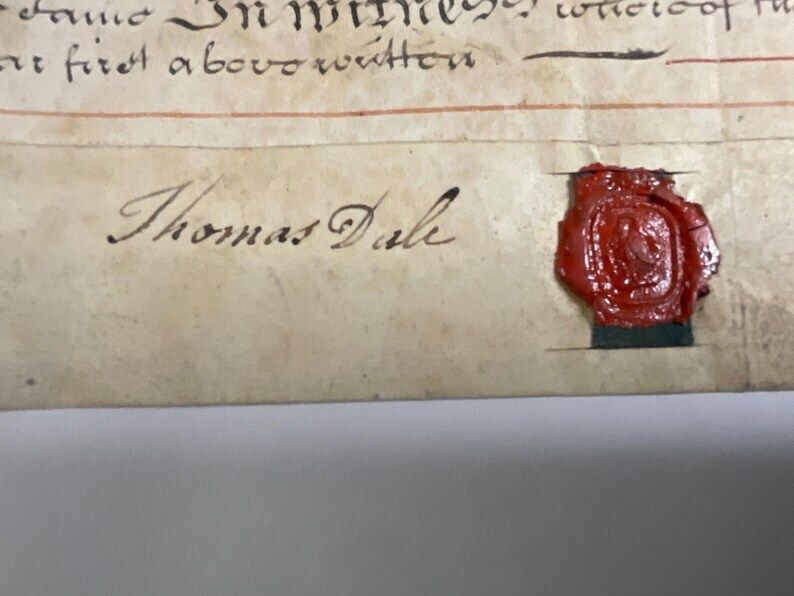 same In witness whereof the
year first above written
Thomas Dale